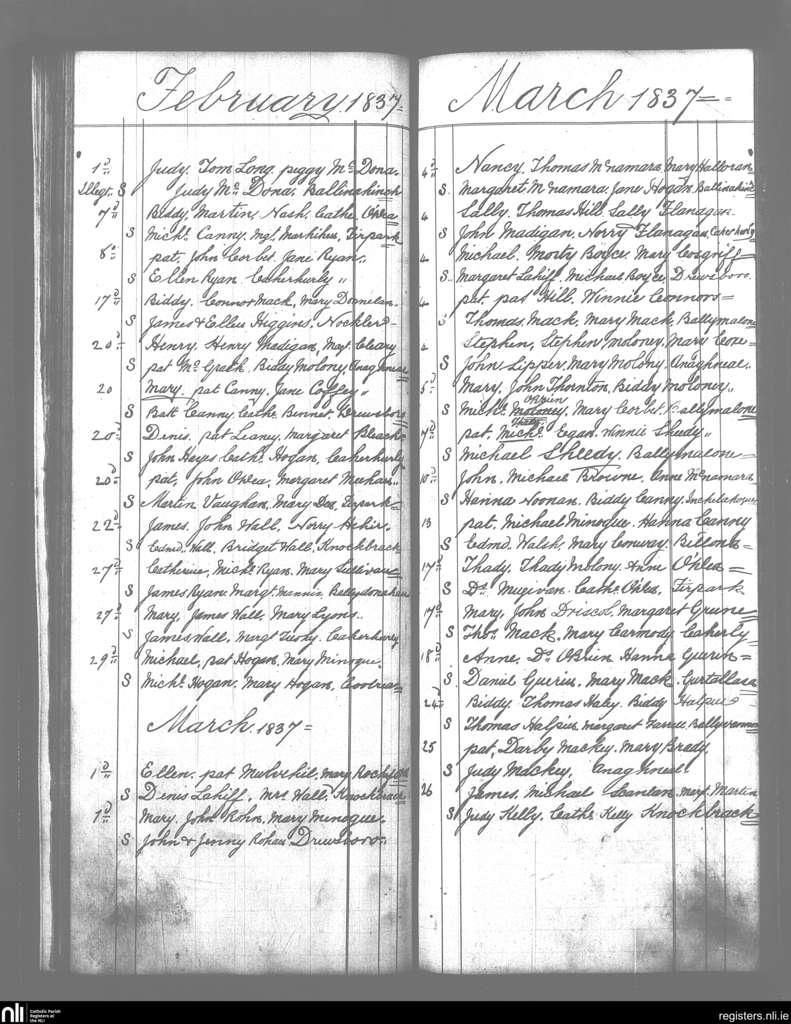 February 1837
1d Judy. Tom Long. piggy Mc Dona.
Illegt. S Judy Mc Dona. Ballinahinch
7d Biddy. Martin Nash. Cathe. OShea
S Michl. Canny. Mgt. Firpark
8d pat. John Corbet. Jane Ryan.
S Ellen Ryan. Caherhurly
17d Biddy. Connor Mack. Mary Donnelan.
S James & Ellen Higgins.
20d Henry. Henry Madigan, Mgt. Cleary
S pat McGrath. Biddy Molony.
20 Mary. pat Canny. Jane Coffey
S Batt Canny. Cathe. Bennet. Drewsboro
20d Denis. pat Margaret
S John Hayes Cathe. Hogan. Caherhurly
20d pat. John OShea. Margaret
S Martin Vaughan, Mary Firpark
22d James. John Wall. Norry
S Edmd. Wall. Bridget Wall. Knockbrack
27d Catherine, Michl. Ryan. Mary Sullivan
S James Ryan. Margt. Ballydonahan
27d Mary, James Wall. Mary Lyons.
S James Wall. Margt Caherhurly
29d Michael, pat Hogan, Mary Minogue.
S Michl. Hogan. Mary Hogan. Coolrea
March. 1837
1d Ellen. pat Mulvehil. Mary
S Denis Lahiff. Mrs Wall. Knockbrack
1d Mary. John Rohn. Mary Minogue.
S John & Jenny Rohan Drewsboro.
March 1837
4d Nancy. Thomas McNamara Mary Halloran
S Margaret McNamara, Jane Hogan. Ballinahinch
4 Sally. Thomas Hill. Sally Flanagan.
S John Madigan, Norry Flanagan, Caherhurly
4 Michael. Morty Boyce. Mary Cosgriff
S. Margaret Lahiff. Michael Boyce. Drewsboro.
4 pat. pat Hill. Winnie Connors
S Thomas Mack. Mary Mack. Ballymalone
4 Stephen, Stephen Moloney, Mary
S John Mary Molony.
5d Mary. John Thornton. Biddy Moloney.
OBrien
S Michl. Moloney. Mary Corbet. Ballymalone
7d pat. Michl. Egan. Winnie Sheedy
S Michael Sheedy. Ballymalone
10d John. Michael Browne. Anne McNamara
S Hanna Noonan. Biddy Canny.
13 pat. Michael Minogue. Hanna Canny
S Edmd. Walsh, Mary Conway.
17d Thady. Thady Molony. Anne OShea
S Ds. Mugivan. Cathe. OShea. Firpark
17d Mary, John Driscol, Margaret Greene
S Thos. Mack. Mary Carmody Caherly
18d Anne. Ds. OBrien Hanna Guerin
S Daniel Guerin. Mary Mack. Gurtallasa
24d Biddy. Thomas Haley. Biddy Halpin
S Thomas Halpin. Margaret Farrell.
25 pat, Darby Mackey. Mary Brady.
S Judy Mackey,
26 James. Michael Scanlan. Margt. Martin
S Judy Kelly. Cathe Kelly Knockbrack
nli Catholic Parish
Registers at
the NLI
registers.nli.ie